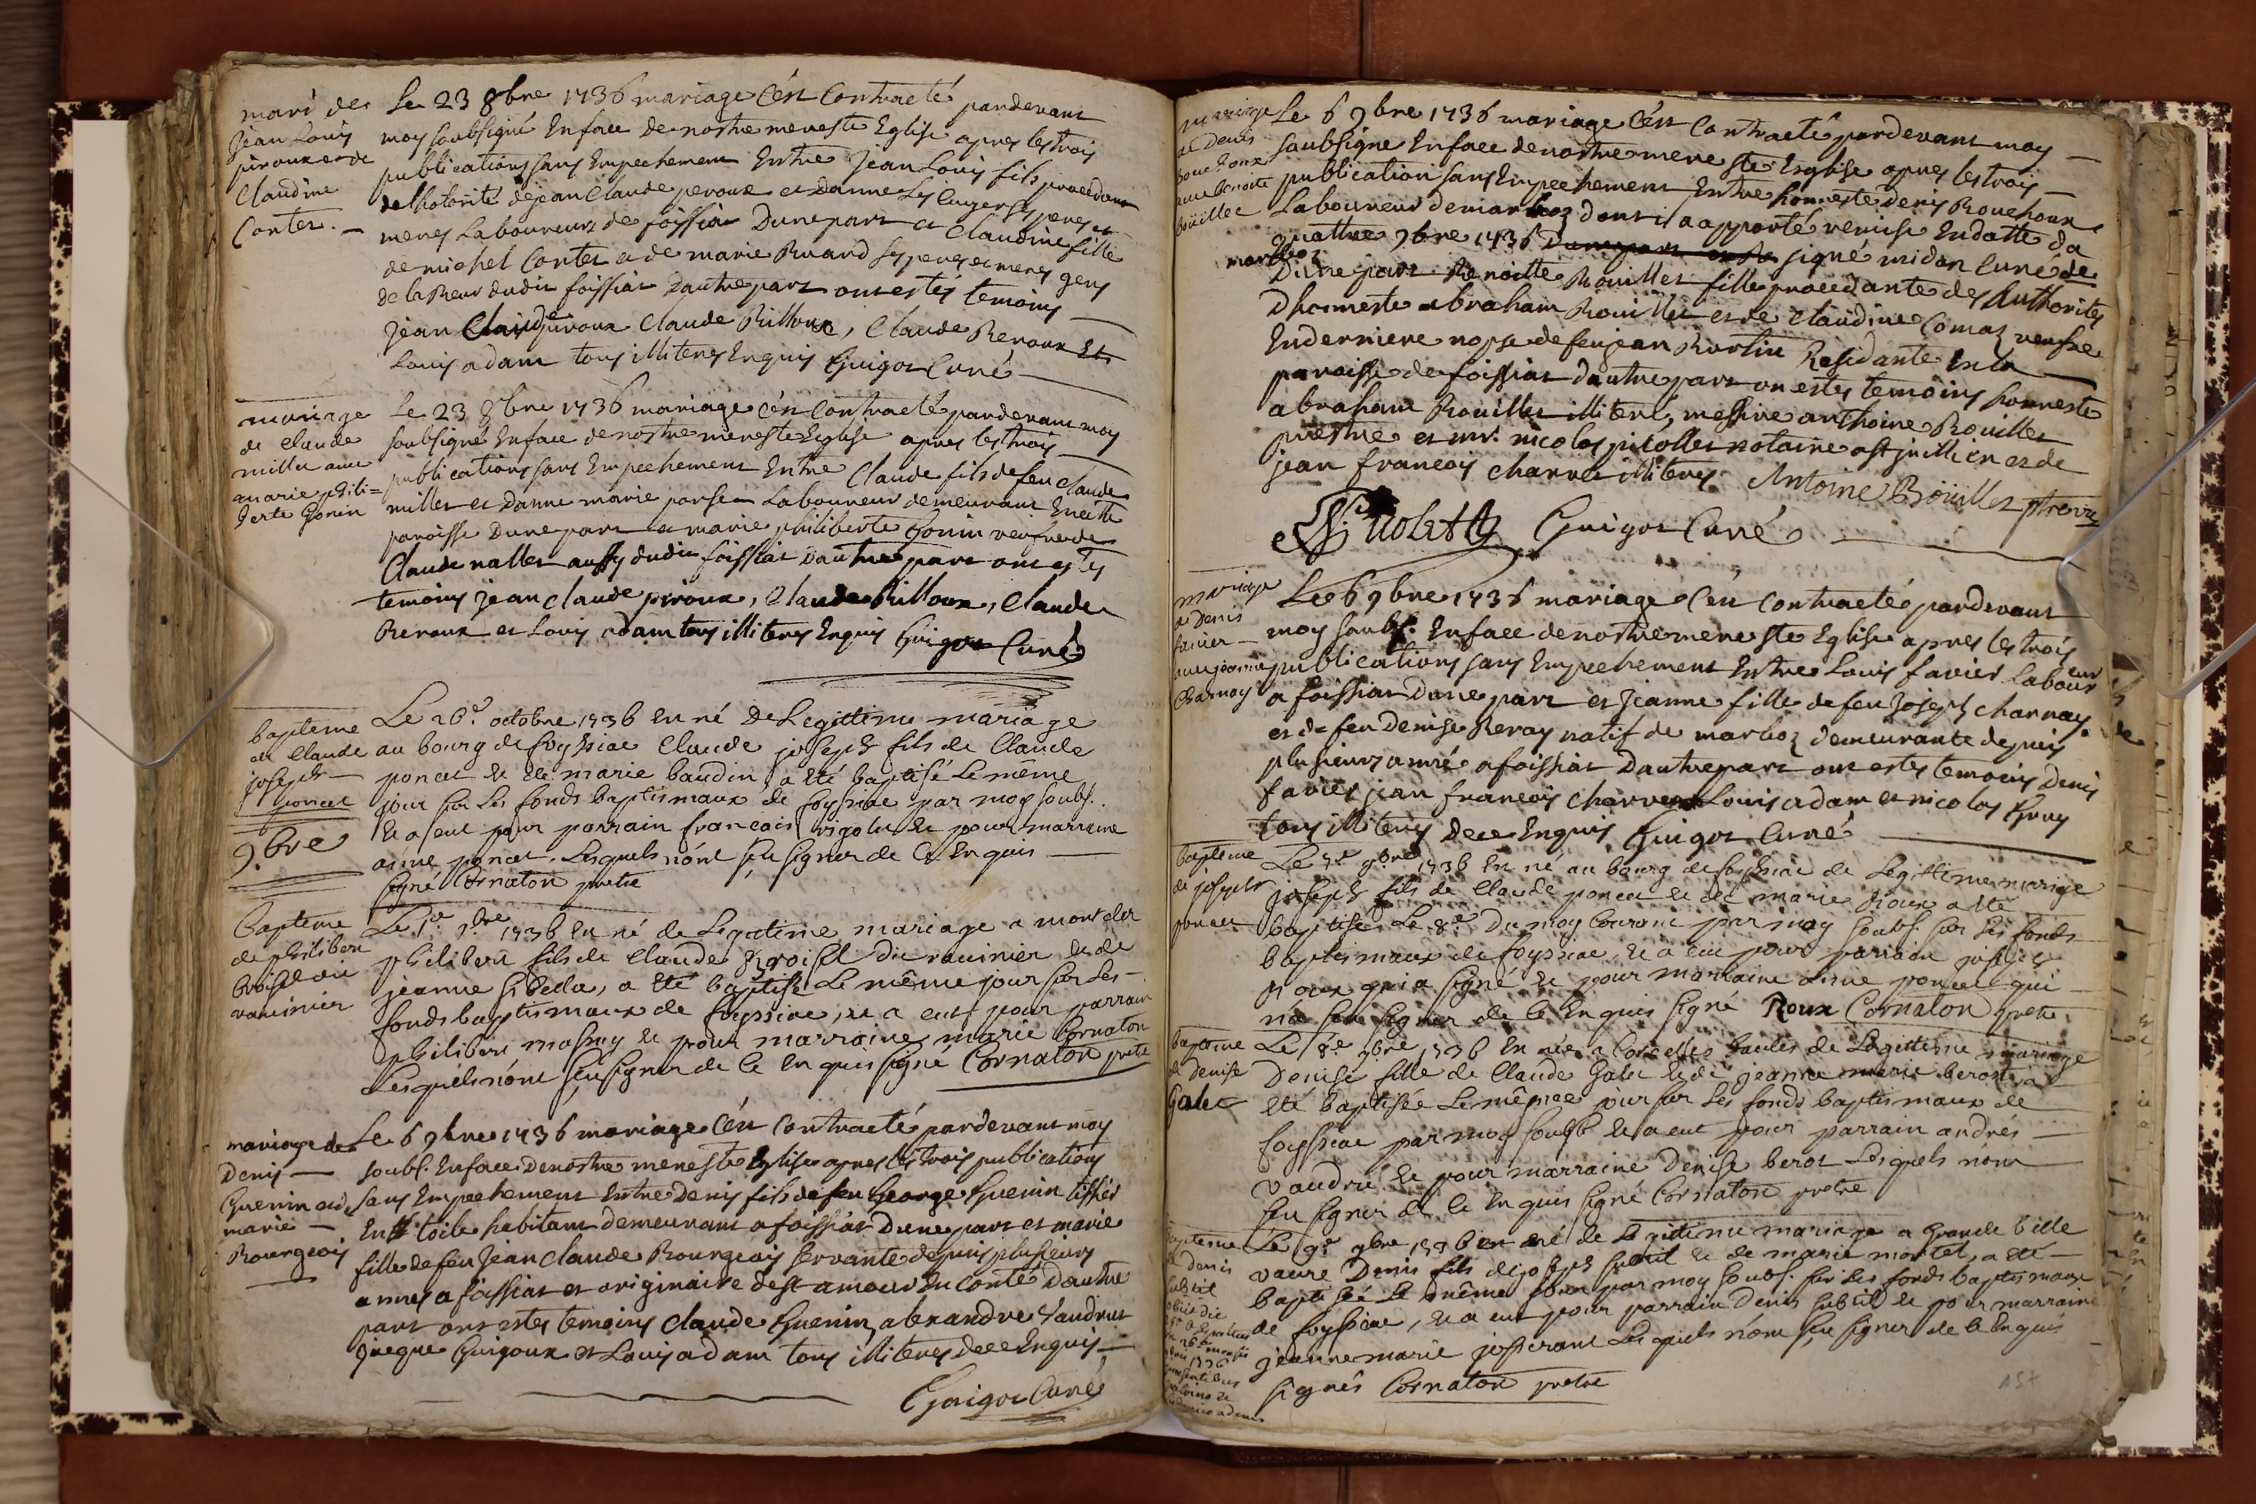 mari des
Jean Louis
piroux et de
Claudine
Contet.
Le 23 8bre 1736 mariage c'est Contracté pardevant
moy soubsigné En face de nostre mere ste Eglise apres les trois
publications sans Empechement Entre Jean Louis fils procedant
de lhotorité de jean Claude peroux et danne Ligeuger ses peres et
meres Laboureurs de foissiat Dune part et Claudine fille
de michel Contet et de marie Buvard ses peres et meres gens
de labeur dudit foissiat Dautre part ont estés temoins
jean Claude piroux Claude Billoux, Claude Reroux Et
Louis adam tous illiterés Enquis Guigot Curé
mariage
de claude
millet avec
marie phili=
berte Gonin
Le 23 8bre 1736 mariage c'est Contracté pardevant moy
soubsigné En face de nostre mere ste Eglise apres les trois
publications sans Empechement Entre Claude fils de feu claude
millet et Danne marie Laboureur demeurant En cette
paroisse Dune part et marie philiberte Gonin veufve de
Claude nallet aussy dudit foissiat Dautre part ont estés
temoins jean claude piroux, Claude Billoux, Claude
Reroux et Louis adam tous illiterés Enquis Guigot Curé
bapteme
de Claude
joseph
poncet
Le 26e. octobre 1736 Est né De Legittime mariage
au bourg de foyssiac Claude joseph fils de Claude
poncet et de marie baudin a eté baptisé Le même
jour sur Les fonds baptismaux de foyssiac par moy soubs.
et a eut pour parrain francois rigolet et pour marraine
anne poncet. Lesquels nont sçu signer de ce Enquis
signé Cornaton pretre
9.bre
Bapteme
de philibert
broissel dit
ravinier
Le 1er 9.bre 1736 Est né de Legitime mariage a montclet
philibert fils de Claude broissel dit ravinier et de
jeanne sibella, a eté baptisé Le même jour sur Les
fonds baptismaux de foyssiac, et a eut pour parrain
philibert massuy et pour marraine marie Cornaton
Lesquels n'ont sçu signer de ce Enquis signé Cornaton pretre
mariage de
Denis
Guenin et de
marie
Bourgeois
Le 6 9bre 1736 mariage c'est Contracté pardevant moy
soubs. En face de nostre mere ste Eglise apres les trois publications
sans Empechement Entre Denis fils de feu George Guenin tissier
En toile habitant demeurant a foissiat Dune part et marie
fille de feu Jean claude Bourgeois servante depuis plusieurs
années a foissiat et originaire de st amour En Conté Dautre
part ont estés temoins Claude Guenin, alexandre Vaudrut
jaque Guigoux et Louis adam tous illiterés de ce Enquis
Guigot Curé
mariage
de Denis
Bouchoux
avec benoite
boüillet
Le 6 9bre 1736 mariage c'est Contracté pardevant moy
soubsigné En face de nostre mere ste Esglise apres les trois
publication sans Empechement Entre honneste denis Bouchoux
Laboureur de marboz dont il a apporté remise En datte du
quattre 9bre 1736 signé midan Curé de
marboz
Dune part Benoitte Bouillet fille procedante des Authorités
Dhonneste abraham Bouillet et de Claudine Comaz veufve
En derniere nopse de feu jean Burtin Residante En la
paroisse de foissiat dautre part on estés temoins honneste
abraham Bouillet illiteré, messire anthoine Bouillet
prestre et mr. nicolas picollet notaire
jean francois charvet illiterés Antoine Boüillet ptre
Guigot Curé
mariage
de Denis
favier
avec jeanne
Charnay
Le 6 9bre 1736 mariage c'est Contracté pardevant
moy soubs. En face de nostre mere ste Eglise apres les trois
publications sans Empechement Entre Louis favier Laboureur
a foissiat Dune part et Jeanne fille de feu Joseph charnay
et de feu Denise Reray natif de marboz demeurante depuis
plusieurs année a foissiat Dautre part ont estés temoins Denis
favier jean francois charvet Louis adam et nicolas Gruy
tous illiterés de ce Enquis Guigot Curé
bapteme
de joseph
poncet
Le 7e 9bre 1736 Est né au bourg de foyssiac de Legittime mariage
joseph fils de Claude poncet et de marie Roux a eté
baptisé Le 8e. Du moy Courant par moy soubs. sur Les fonds
baptismaux de foyssiac, et a eut pour parrain joseph
Roux qui a signé et pour marraine anne poncet qui
na sçu signer de ce Enquis signé Roux Cornaton pretre.
bapteme
de denise
Galet
Le 8e 9bre 1736 Est née a Corcelles baules de Legittime mariage
Denise fille de Claude Galet et de jeanne marie berost a
eté baptisée Le même jour sur Les fonds baptismaux de
foyssiac par moy soubs et a eut pour parrain andrés
vaudru et pour marraine Denise berot Lesquels nont
sçu signer de ce Enquis signé Cornaton pretre
bapteme
de denis
subtil
Le 9e 9bre 1736 est né de Legittime mariage a Grande bille
vaure Denis fils de joseph subtil et de marie mortel, a eté
baptisé Le même jour par moy soubs. sur Les fonds baptismaux
de foyssiac, et a eut pour parrain denis subtil et pour marraine
jeanne marie josserant Lesquels n'ont sçu signer de ce Enquis
signés Cornaton pretre
157